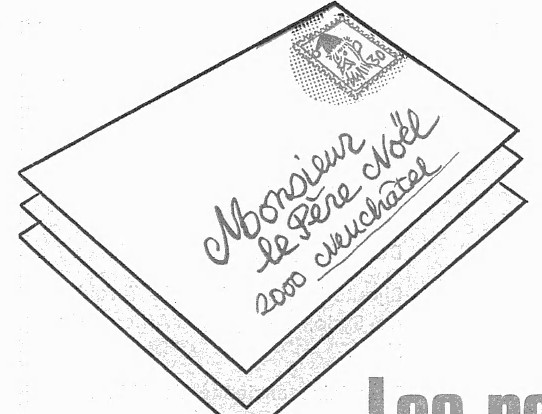 30
Monsieur
le Père Noël
2000 Neuchâtel
Les